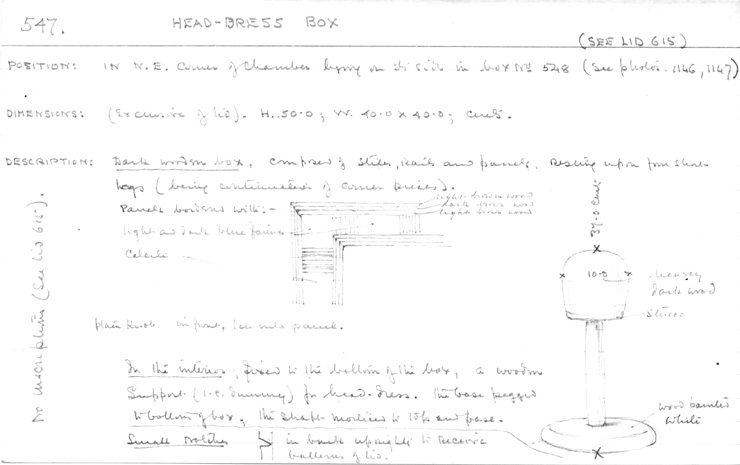 547. HEAD-DRESS BOX
(SEE LID 615)
POSITION: IN N.E. Corner of Chamber lying on its side in box No 548 (See photos. 1146, 1147)
DIMENSIONS: (Exclusive of lid). H. 50.0; W. 40.0 x 40.0; cents.
DESCRIPTION: Dark wooden box, composed of stiles, rails and panels. Resting upon four short
legs (being continuation of corner pieces).
Panels bordered with:-
light brown wood
dark brown wood
light brown wood
light and dark blue faience
Calcite
plain knob in front, panel.
In the interior, fixed to the bottom of the box, a wooden
Support (i.e. dummy) for head-dress. The base pegged
to bottom of box, the shaft morticed to top and base.
Small notches in back uprights to receive
battens of lid.
No inscription (See lid 615).
37.0 cents
10.0
heavy
dark wood
Stucco
wood painted
white